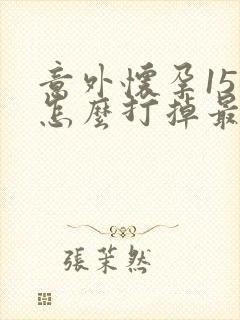 意外懷孕15
怎麼打掉最
張茉然